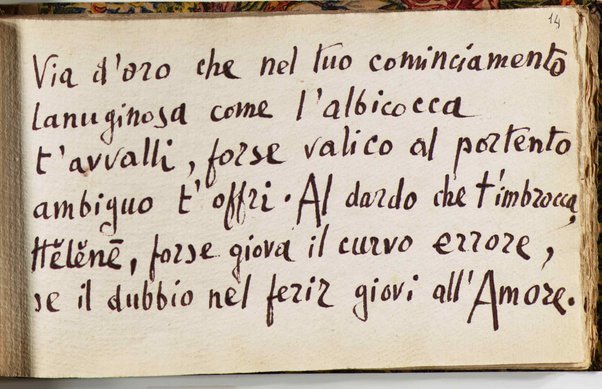 14
Via d'oro che nel tuo cominciamento
lanuginosa come l'albicocca
t'avvalli, forse valico al portento
ambiguo t'offri. Al dardo che t'imbrocca,
Hĕlĕnē, forse giova il curvo errore,
se il dubbio nel ferir giovi all'Amore.